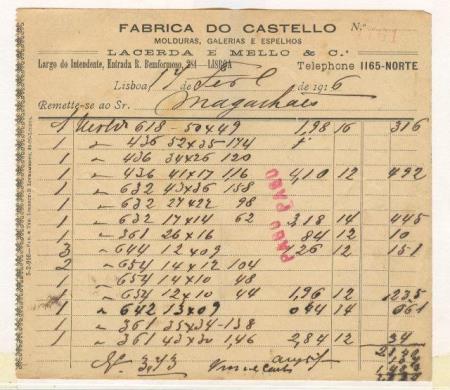 FABRICA DO CASTELLO
Nº
MOLDURAS, GALERIAS E ESPELHOS
LACERDA E MELLO & C.ª
Largo do Intendente, Entrada R. Bemformoso, 284—LISBOA
Telephone 1165-NORTE
Lisboa 14 de de 1916
Remette-se ao Sr. Magalhaes
1 618 - 50x49 1,98 16 316
1 " 436 52x35 - 174
1 " 436 34x26 120
1 " 436 41x17 116 4,10 12 492
1 " 632 43x36 158
1 " 632 27x22 98
1 " 632 17x14 62 3,18 14 445
1 " 361 26x16 84 12 10
3 " 644 12x09 1,26 12 151
2 " 654 14x12 104
1 " 654 14x10 48
1 " 654 12x10 44 1,96 12 235
1 " 642 13x09 044 14 061
1 " 361 35x34 - 138
1 " 361 43x30 1,46 2,84 12 34
PAGO PAGO